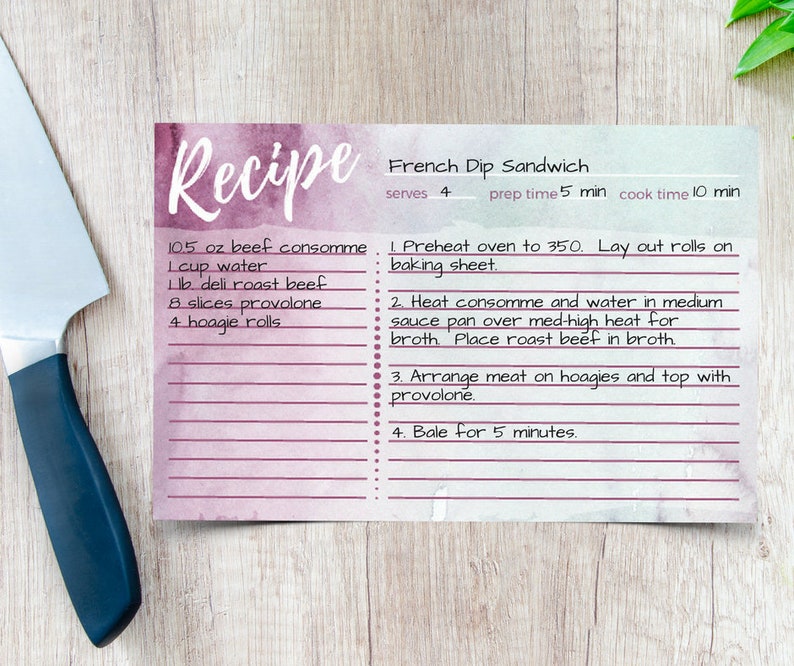 Recipe
French Dip Sandwich
serves 4 prep time 5 min cook time 10 min
10.5 oz beef consomme
1 cup water
1 lb. deli roast beef
8 slices provolone
4 hoagie rolls
1. Preheat oven to 350. Lay out rolls on
baking sheet.
2. Heat consomme and water in medium
sauce pan over med-high heat for
broth. Place roast beef in broth.
3. Arrange meat on hoagies and top with
provolone.
4. Bale for 5 minutes.